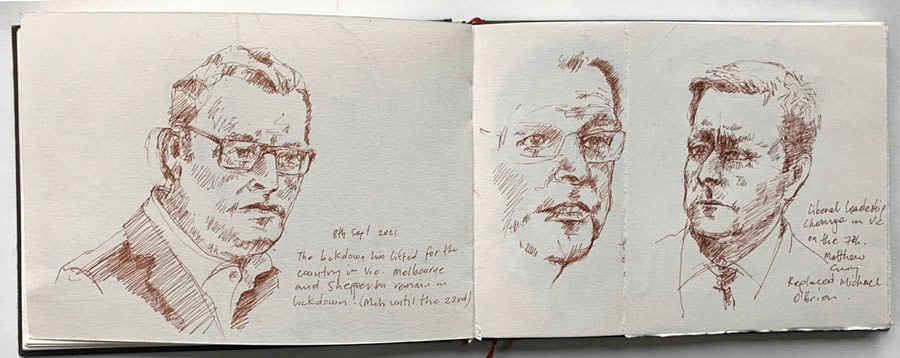 8th Sept 2021
The lockdown has lifted for the
country in Vic. Melbourne
and Shepparton remain in
lockdown! (Melb until the 22nd)
Liberal Leadership
change in Vic
on the 7th.
Matthew
Guy
Replaced Michael
O'Brien.